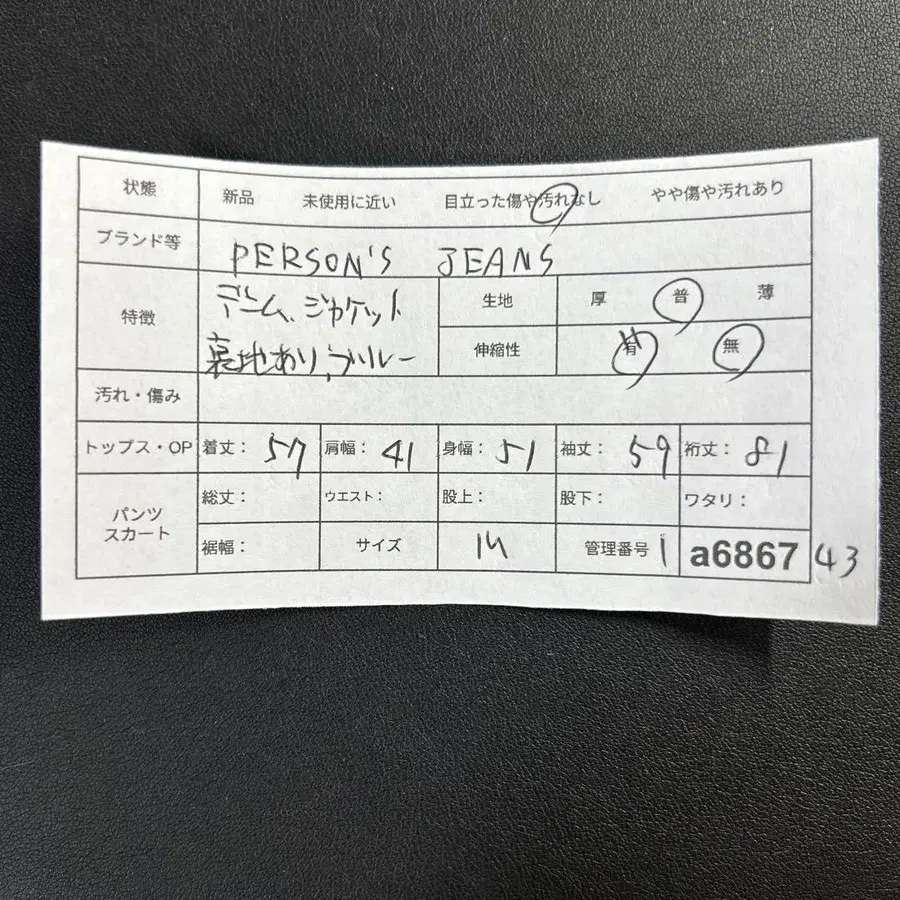 状態 新品 未使用に近い 目立った傷や汚れなし やや傷や汚れあり
ブランド等 PERSON'S JEANS
特徴 デニム、ジャケット 生地 厚 普 薄
裏地あり、ブルー 伸縮性 有 無
汚れ・傷み
トップス・OP 着丈: 57 肩幅: 41 身幅: 51 袖丈: 59 裄丈: 81
パンツ 総丈: ウエスト: 股上: 股下: ワタリ:
スカート 裾幅: サイズ M 管理番号 1 a6867 43